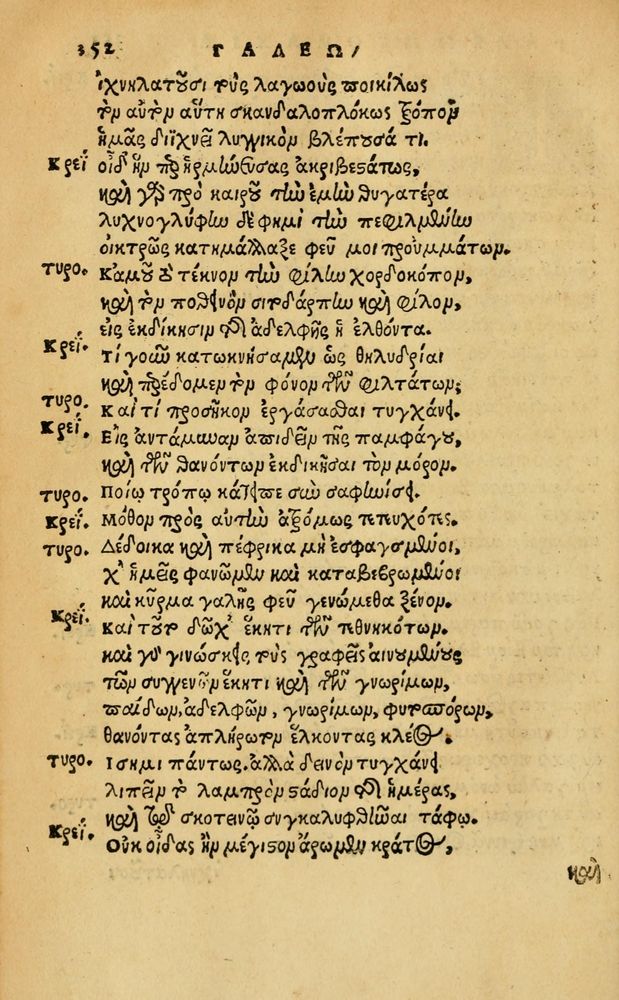 352 ΓΑΛΕΩ/
ἰχνηλατοῦσι τοὺς λαγωοὺς ποικίλως
τὸν αὐτὸν αὕτη σκανδαλοπλόκως τρόπον
ἡμᾶς διϊχνεῖ λυγγικὸν βλέπουσά τι.
Κρεί οἶδ' ἣν προηρμήνευσας ἀκριβεστάτως,
καὶ γὰρ πρὸ καιροῦ τὴν ἐμὴν θυγατέρα
λυχνογλύφην δέ φημι τὴν πεφιλμένην
οἰκτρῶς κατημάλλαξε φεῦ μοι προὐμμάτων.
τυρο. Κἀμοῦ δὲ τέκνον τὸν φίλον χορδοκόπον,
καὶ τὸν ποθεινὸν σιτδάρπην καὶ φίλον,
εἰς ἐκδίκησιν τῆς ἀδελφῆς ἢ ἐλθόντα.
Κρεί. Τί γοῦν κατωκνήσαμεν ὡς θηλυδρίαι
καὶ προέδομεν τὸν φόνον τῶν φιλτάτων;
τυρο. Καὶ τί προσῆκον ἐργάσασθαι τυγχάνει.
Κρεί. Εἰς ἀντάμυναν ἀπιδεῖν τῆς παμφάγου,
καὶ τῶν θανόντων ἐκδικῆσαι τὸν μόρον.
τυρο. Ποίῳ τρόπῳ κάτειπε σὺν σαφηνίσει.
Κρεί. Μόθον πρὸς αὐτὴν ἀτρόμως τετευχότες.
τυρο. Δέδοικα καὶ πέφρικα μὴ ἐσφαγσμένοι,
χ' ἡμεῖς φανῶμεν καὶ καταβεβρωμένοι
καὶ κύρμα γαλῆς φεῦ γενώμεθα ξένον.
Κρεί. Καὶ τοῦτον δῶχ' ἕκητι τῶν τεθνηκότων.
καὶ γὰρ γινώσκεις τοὺς γραφεῖς αἰνουμένους
τῶν συγγενῶν ἕκητι καὶ τῶν γνωρίμων,
παίδων, ἀδελφῶν, γνωρίμων, φυτοσπόρων,
θανόντας ἀπλήρωτον ἕλκοντας κλέος.
τυρο. Ισημι πάντως. ἀλλὰ δεινὸν τυγχάνει
λιπεῖν τὸ λαμπρὸν στάδιον τῆς ἡμέρας,
καὶ τῷ σκοτεινῷ συγκαλυφθῆναι τάφῳ.
Κρεί. Οὐκ οἶδας ἣν μέγιστον ἄρωμεν κράτος,
καὶ